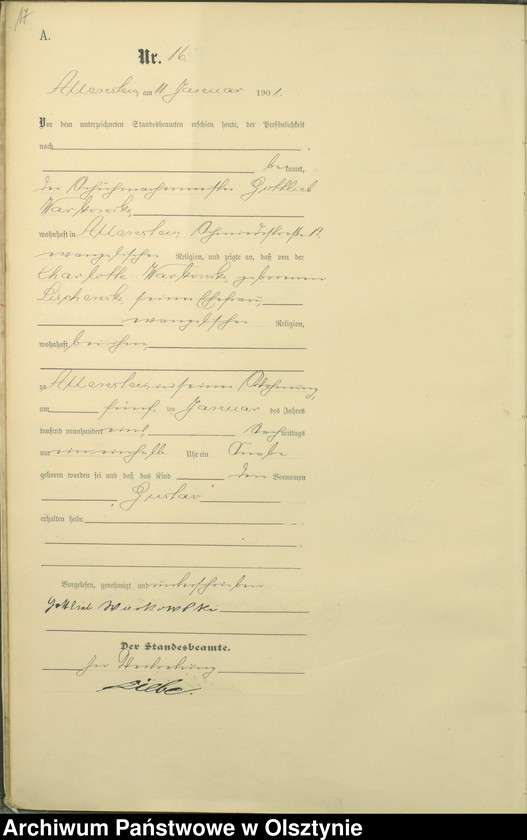 17
A.
Nr. 16
Allenstein am 11 Januar 1901.
Vor dem unterzeichneten Standesbeamten erschien heute, der Persönlichkeit
nach
bekannt,
der Schuhmachermeister Gottlieb
Warkowski,
wohnhaft in Allenstein, Schmiedestraße 12
evangelischer Religion, und zeigte an, daß von der
Charlotte Warkowski, geborenen
seiner Ehefrau,
evangelischer Religion,
wohnhaft bei ihm,
zu Allenstein, in seiner Wohnung,
am fünf ten Januar des Jahres
tausend neunhundert eins, Nachmittags
um ein einhalb Uhr ein Knabe
geboren worden sei und daß das Kind den Vornamen
Gustav
erhalten habe.
Vorgelesen, genehmigt und unterschrieben
Gottlieb Warkowski
Der Standesbeamte.
In Vertretung
Archiwum Państwowe w Olsztynie